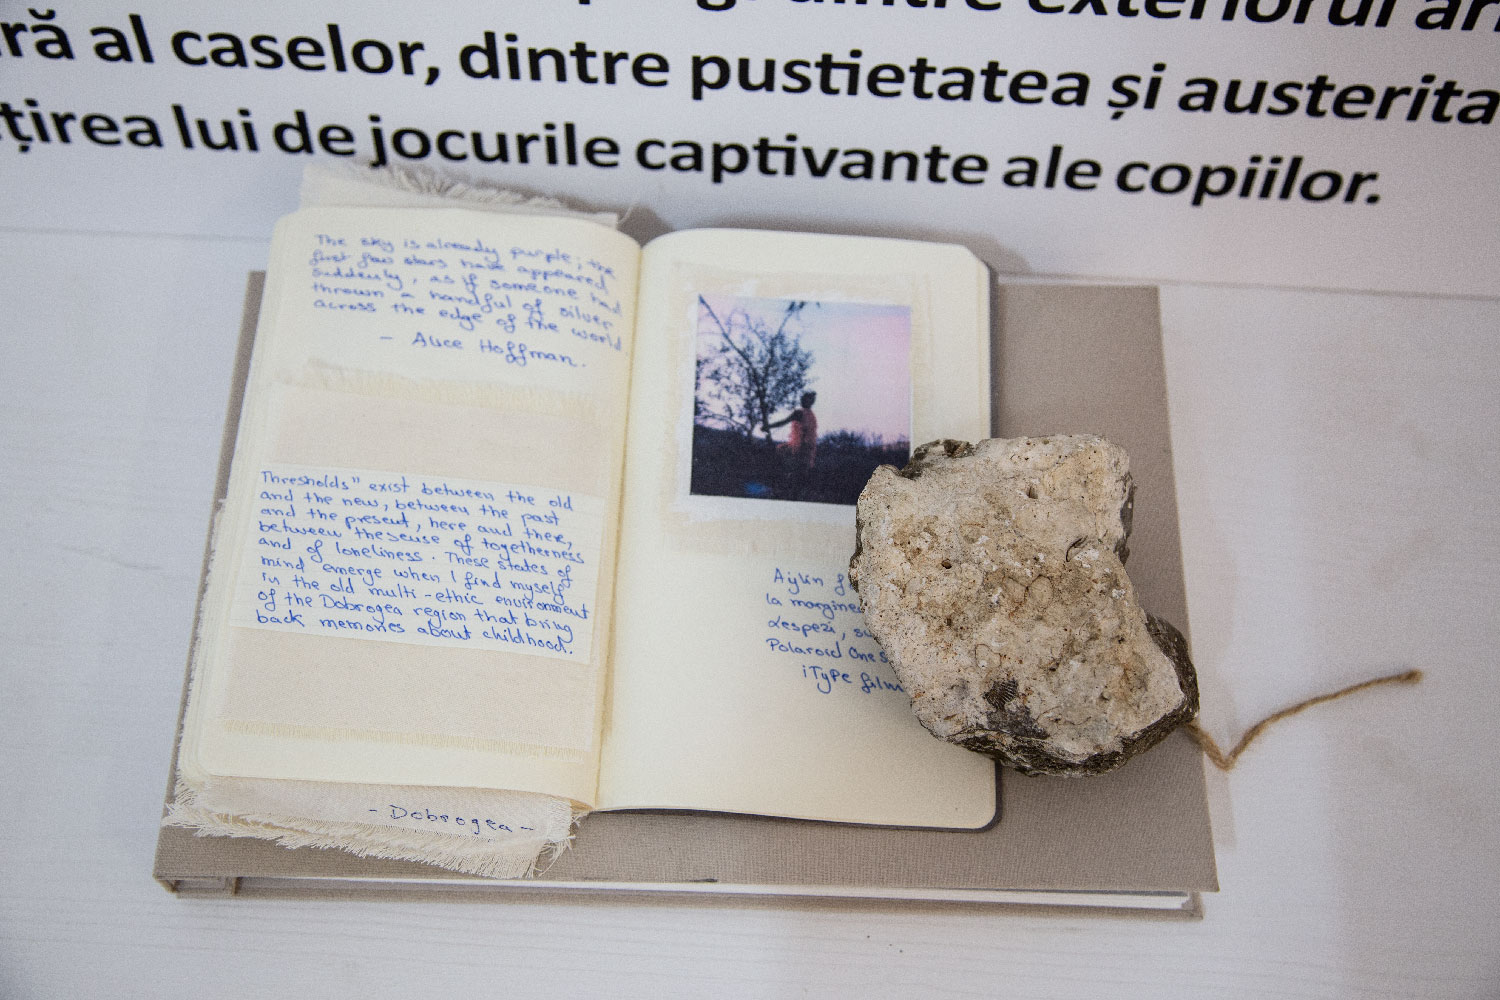 dintre exteriorul
al caselor, dintre pustietatea și
lui de jocurile captivante ale copiilor.
The sky is already purple; the
first few stars have appeared,
suddenly, as if someone had
thrown a handful of silver
across the edge of the world.
- Alice Hoffman.
Thresholds" exist between the old
and the new, between the past
and the present, here and there,
between the sense of togetherness
and of loneliness. These states of
mind emerge when I find myself
in the old multi-ethic environment
of the Dobrogea region that bring
back memories about childhood.
- Dobrogea -
Aylin
la
Lespezi,
Polaroid One
iType film